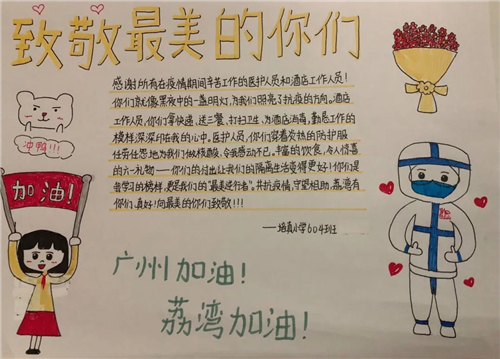 致敬最美的你们
感谢所有在疫情期间辛苦工作的医护人员和酒店工作人员！
你们就像黑夜中的一盏明灯，为我们照亮了抗疫的方向。酒店
工作人员，你们拿快递，送三餐，打扫卫生，为酒店消毒，勤恳工作的
模样深深印在我的心中。医护人员，你们穿着发热的防护服
任劳任怨地为我们做核酸，令我感动不已。丰富的饮食，令人惊喜
的六一礼物——你们的付出让我们的隔离生活变得更好！你们是
我学习的榜样，更是我们的“最美逆行者”。共抗疫情，守望相助，荔湾有
你们，真好！向最美的你们致敬！！！
——培真小学604班
冲鸭！！！
加油！
广州加油！
荔湾加油！